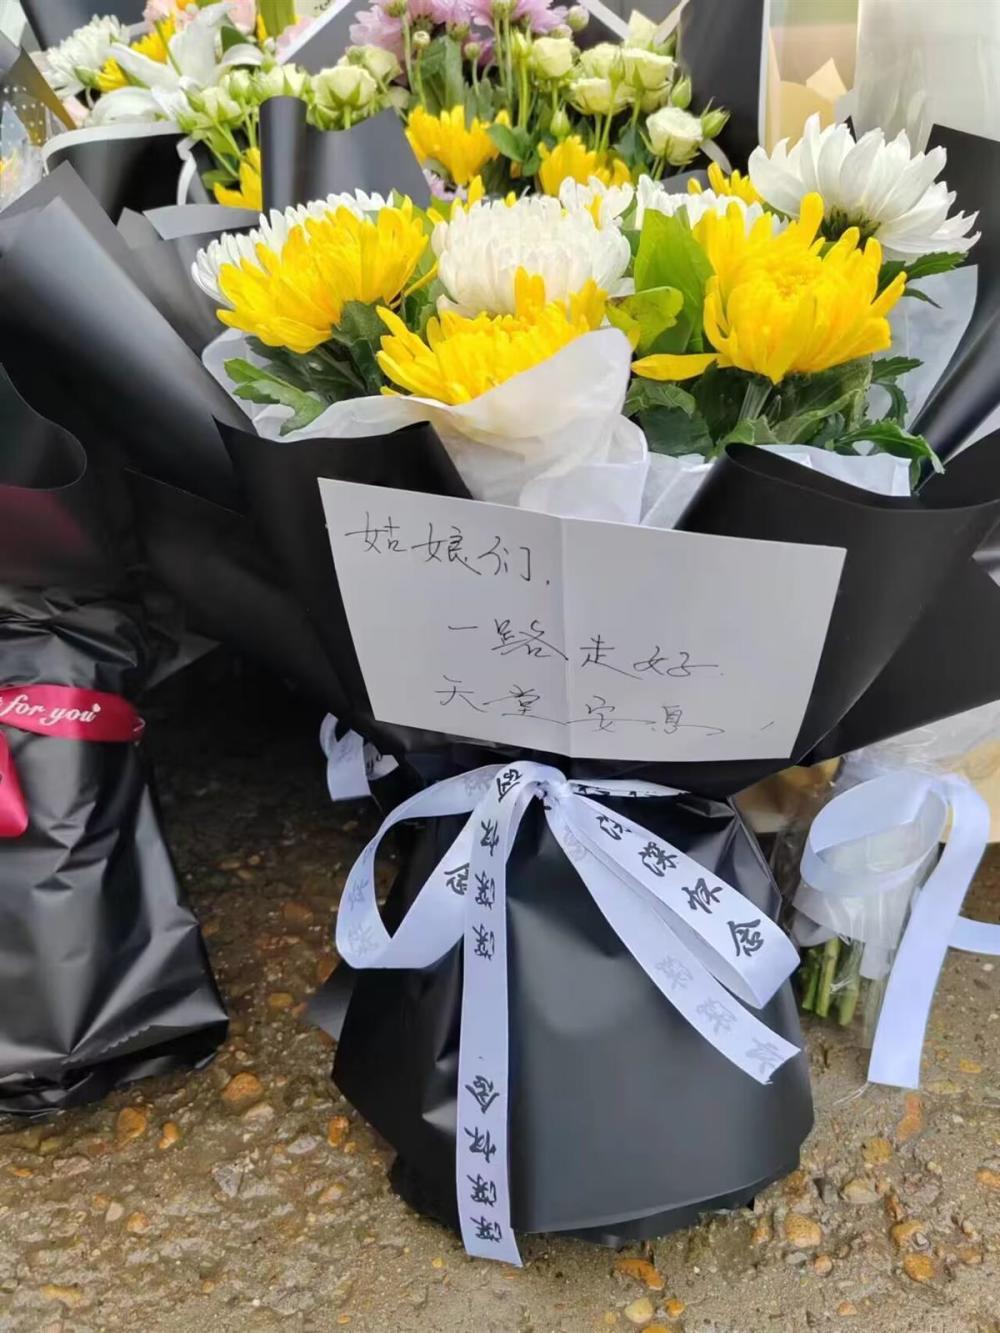 姑娘们.
一路走好
天堂安息.
for you
深深怀念
深深怀念
深深怀念